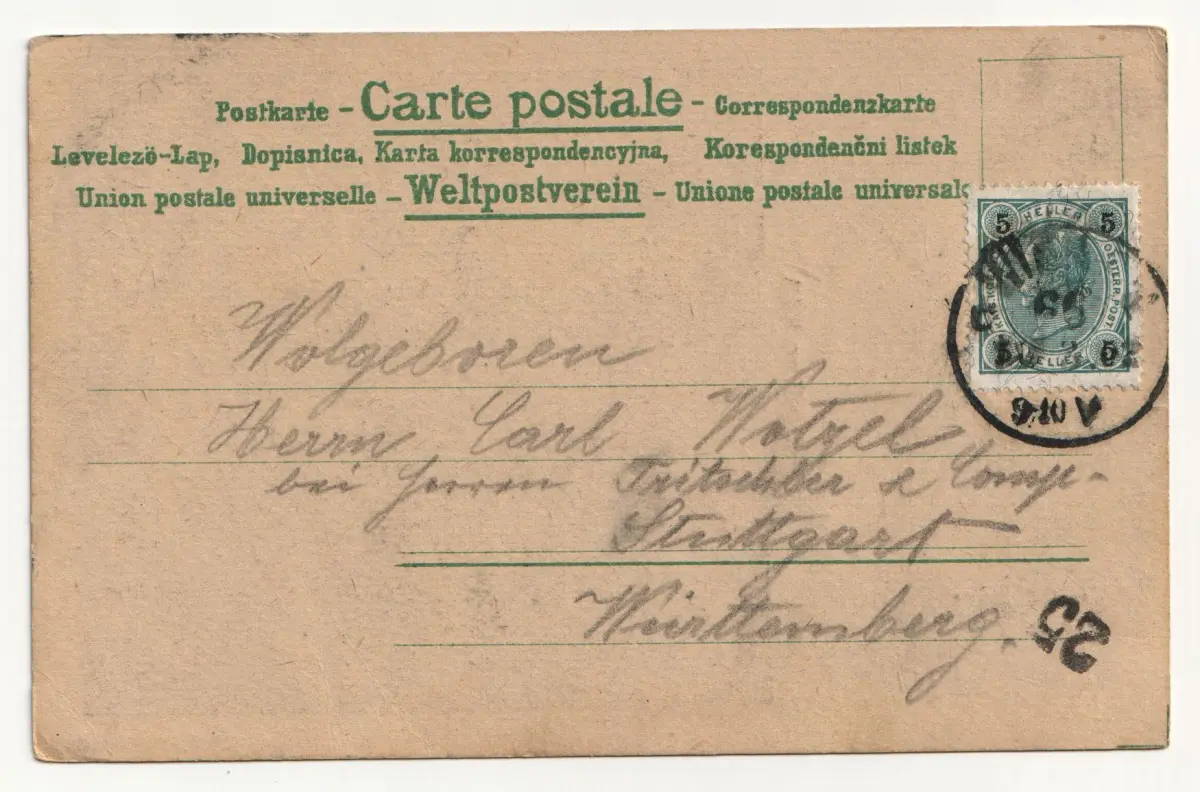 Postkarte – Carte postale – Correspondenzkarte
Levelezö-Lap, Dopisnica, Karta korrespondencyjna, Korespondenčni listek
Union postale universelle – Weltpostverein – Unione postale universale
5 HELLER 5
OESTERR. POST
5 HELLER 5
9-10 V
Wolgeboren
Herrn Carl Wotzel
bei Herren Tritschler & Comp.
Stuttgart
Württemberg.
25